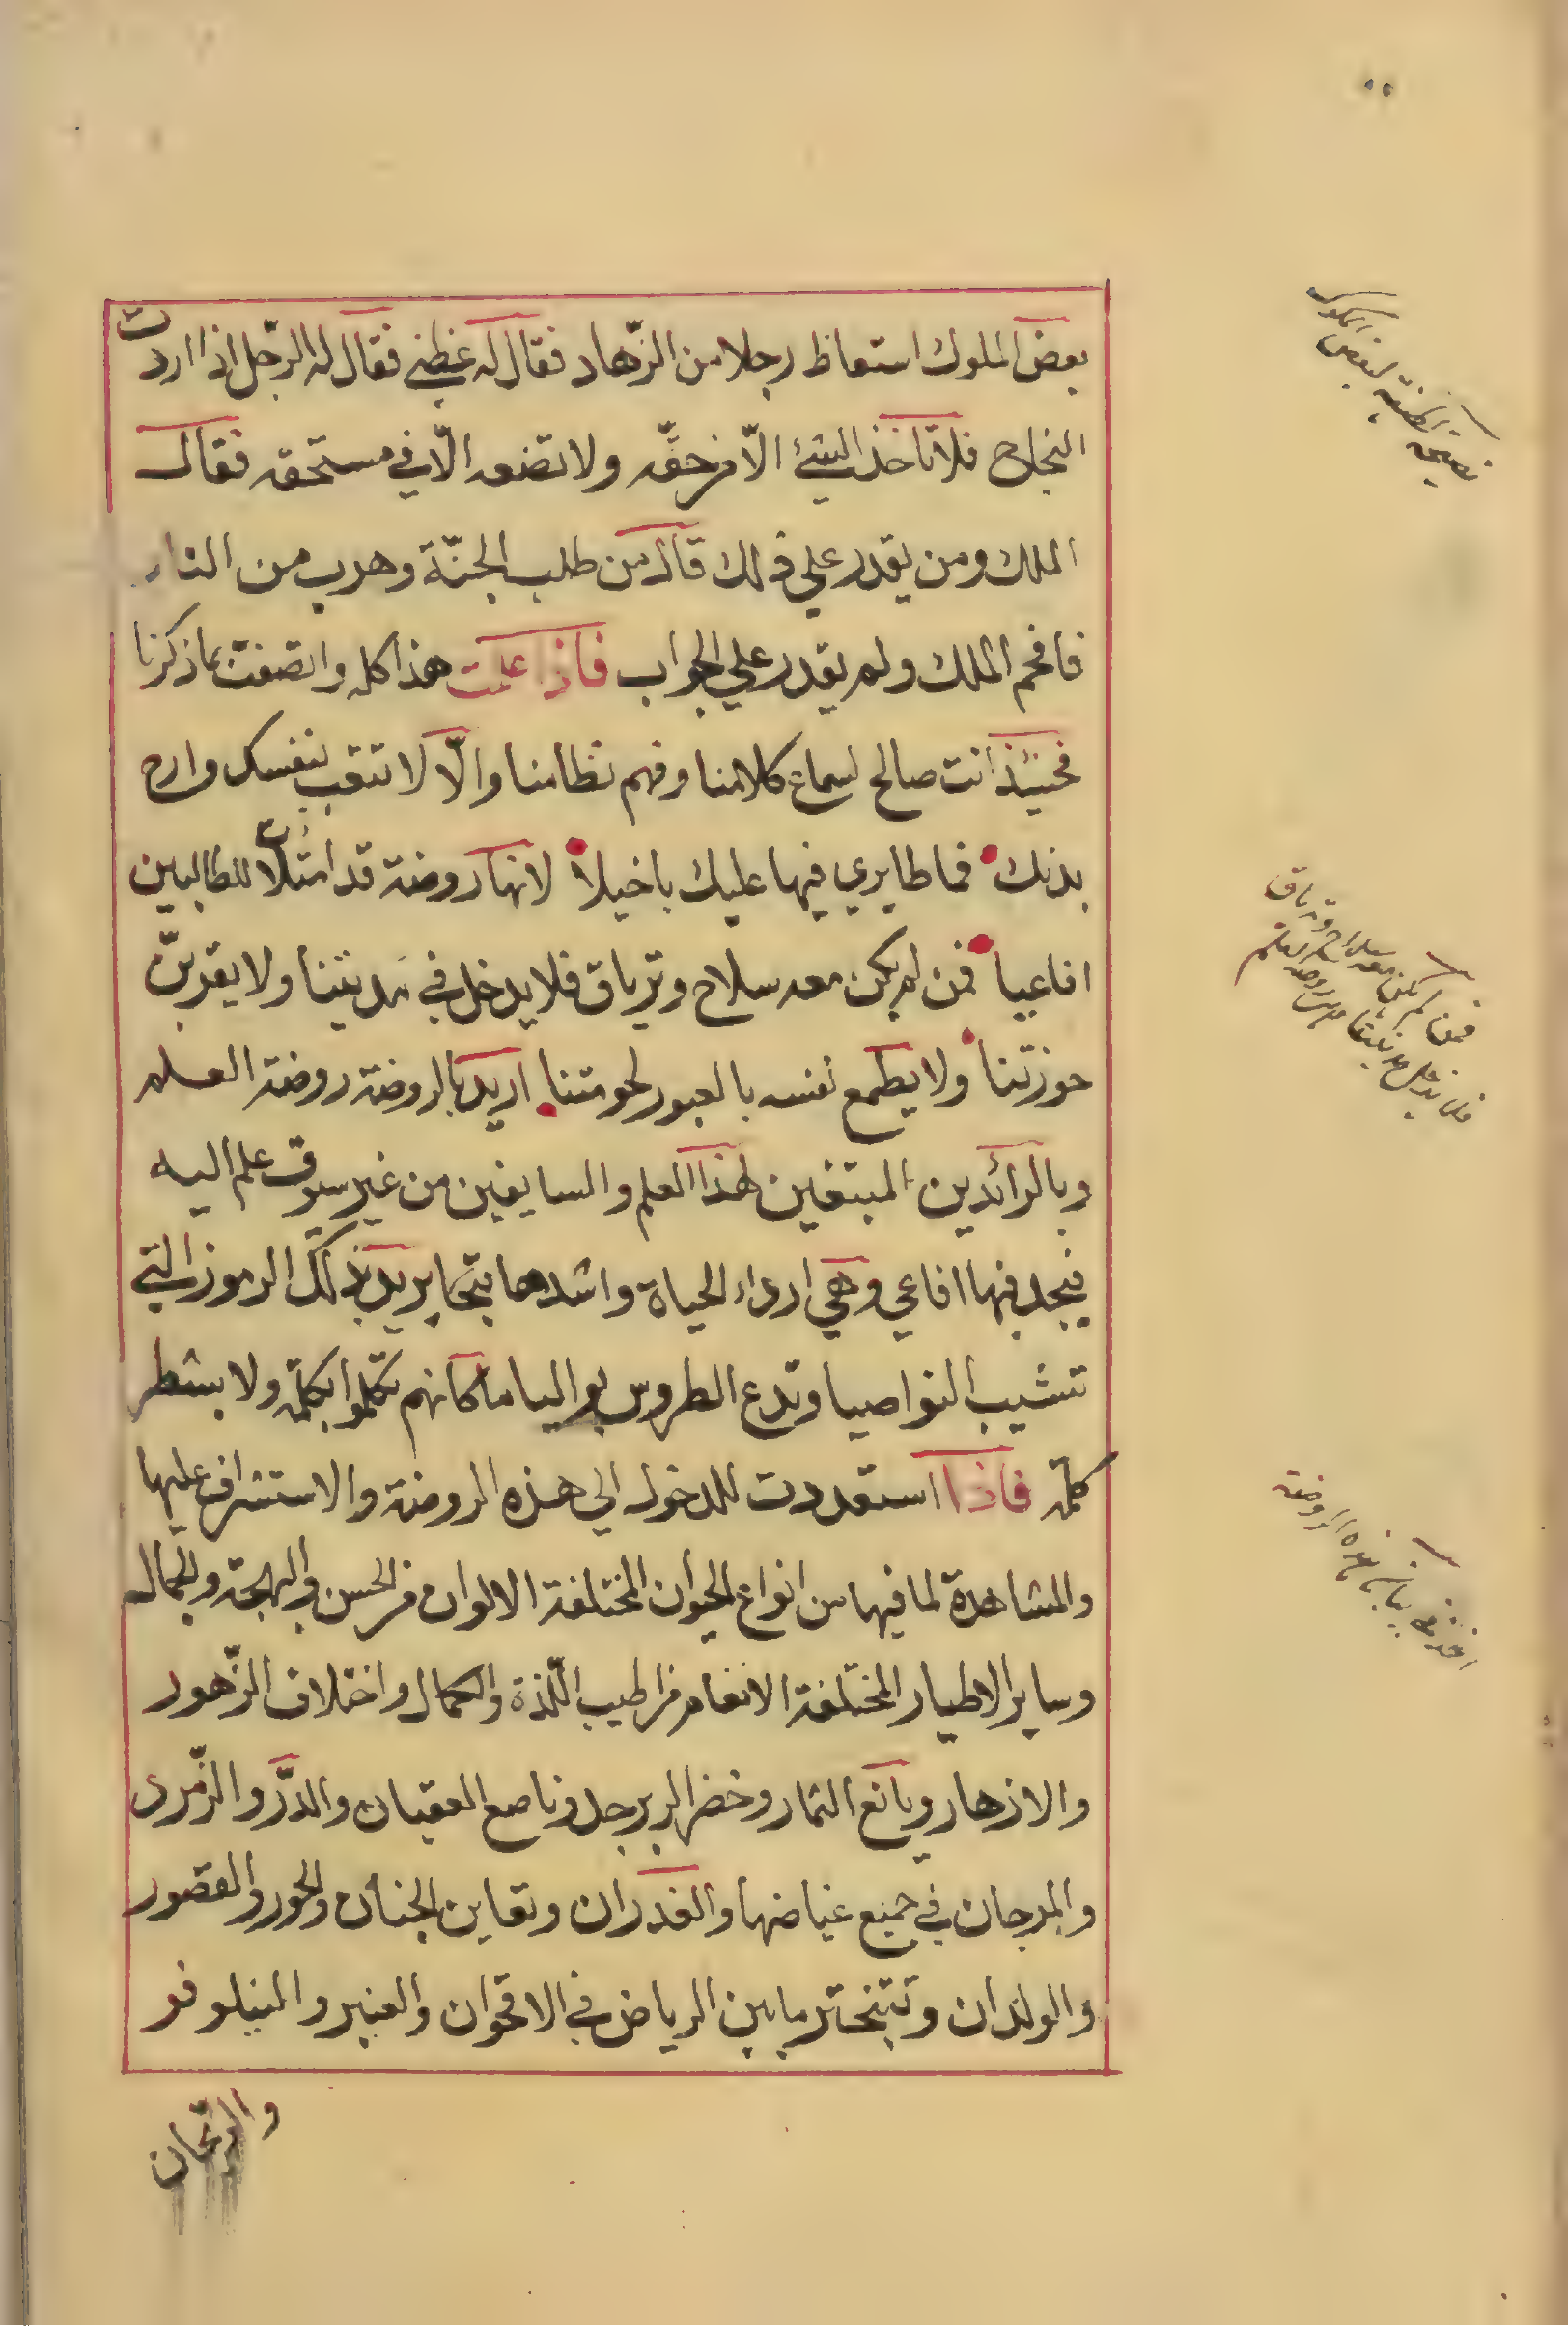 بعض الملوك استعاظ رجلا من الزّهاد فقال له عظني فقال له الرّجل اذا اردت
النجاح فلا تاخذ الشئ الّا من حقّه ولا تضعه الّا في مستحقه فقال
الملك ومن يقدر علي ذلك قال من طلب الجنّة وهرب من النار
فافحم الملك ولم يقدر علي الجواب فاذا علمت هذا كله واتصفت بما ذكرنا
فحينئذ انت صالح لسماع كلامنا وفهم نظامنا والّا لا تتعب نفسك وارح
بدنك فما طايري فيها عليك باخيلا لانها روضة قد امتلات للطالبين
افاعيا فمن لم يكن معه سلاح وترياق فلا يدخل في مدينتنا ولا يقربنّ
حوزتنا ولا يطمع نفسه بالعبور لحومتنا اريد بالروضة روضة العلم
وبالرائدين المبتغين لهذا العلم والسايغين من غير سوق علم اليه
فيجد فيها افاعي وهي ارداء الحياة واشدها بتحا يريد بذلك الرموز التي
تشيب النواصيا وتدع الطروس بواليا ما كانهم تكلموا بكلمة ولا بشطر
كلمة فاذا استعددت للدخول الي هذه الروضة والاستشراف عليها
والمشاهدة لما فيها من انواع الحيوان المختلفة الالوان من الحسن والبهجة والجمال
وساير الاطيار المختلفة الانغام من اطيب اللّذة والكمال واختلاف الزّهور
والازهار ويانع الثمار وخضر الزبرجد وناصع العقيان والدّر والزّمرد
والمرجان في جميع غياضها والغدران وتعاين الجنان والحور والقصور
والولدان وتتبختر ما بين الرياض في الاقحوان والعنبر والنيلوفر
والريحان
نصيحة لطيفة لبعض الملوك
فمن لم يكن معه سلاح وترياق
فلا يدخل مدينتنا روضة العلم
هذه الروضة